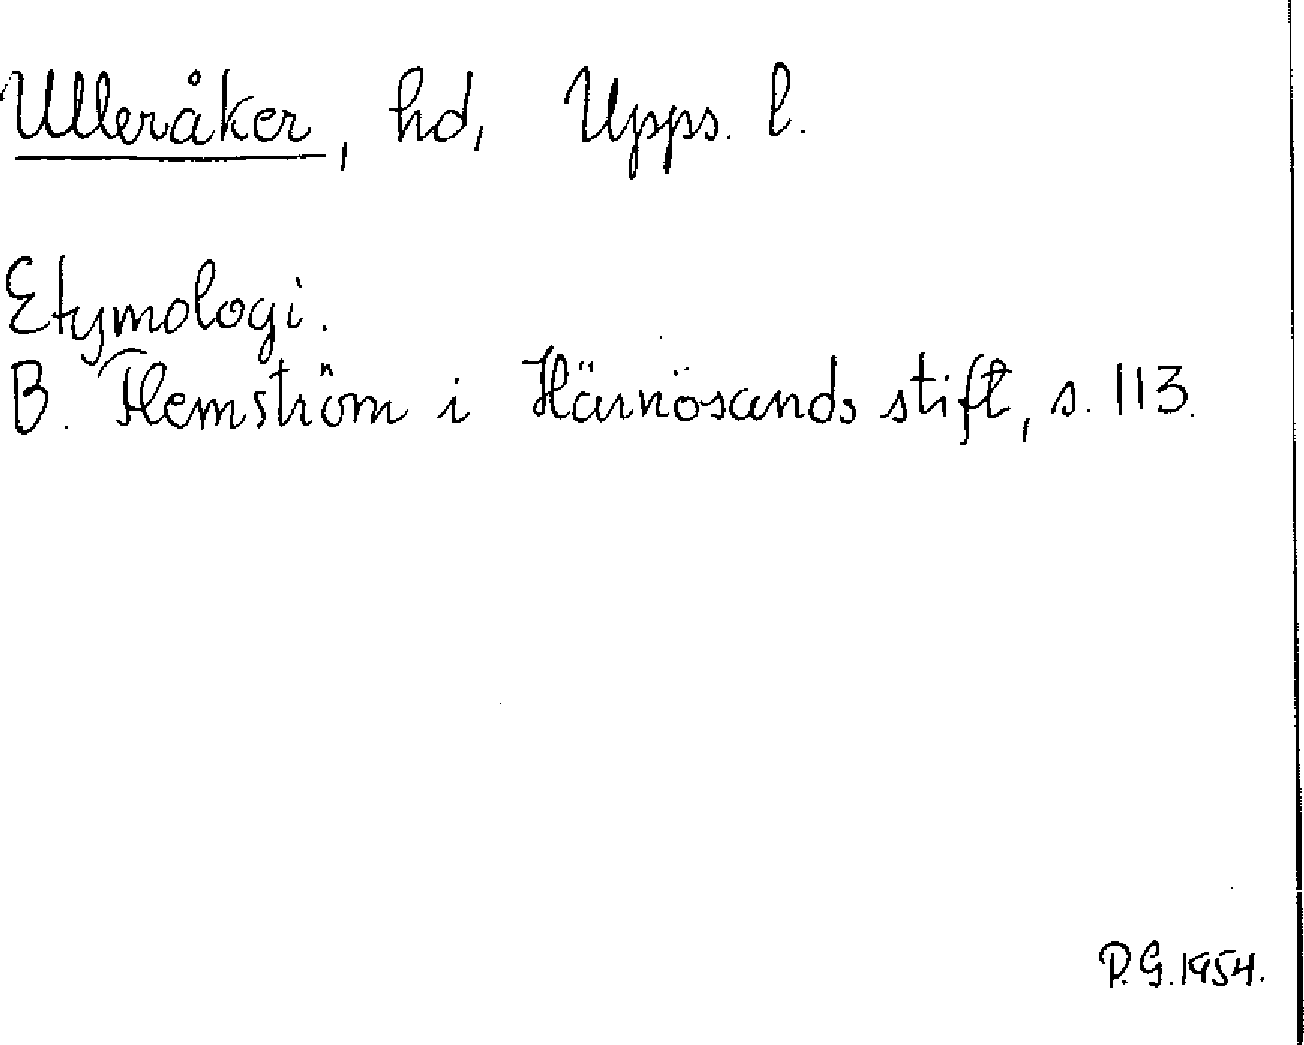 Ulleråker, hd, Upps. l.
Etymologi.
B. Flemström i Härnösands stift, s. 113.
P.G. 1954.